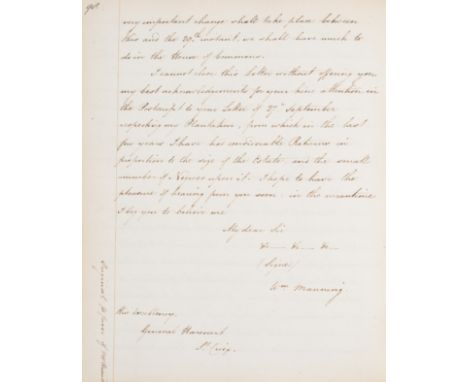 very important change shall take place between
this and the 29th instant, we shall have much to
do in the House of Commons.
I cannot close this Letter without offering you
my best acknowledgements for your kind attention in
the Postscript to your Letter of 27th September
respecting my Plantation, from which in the last
few years I have had considerable Returns in
proportion to the size of the Estate, and the small
number of Negroes upon it. I hope to have the
pleasure of hearing from you soon; in the meantime
I beg you to believe me
My dear Sir
&c— &c— &c—
(Signed)
Wm Manning
His Excellency
General Harcourt
St Croix.